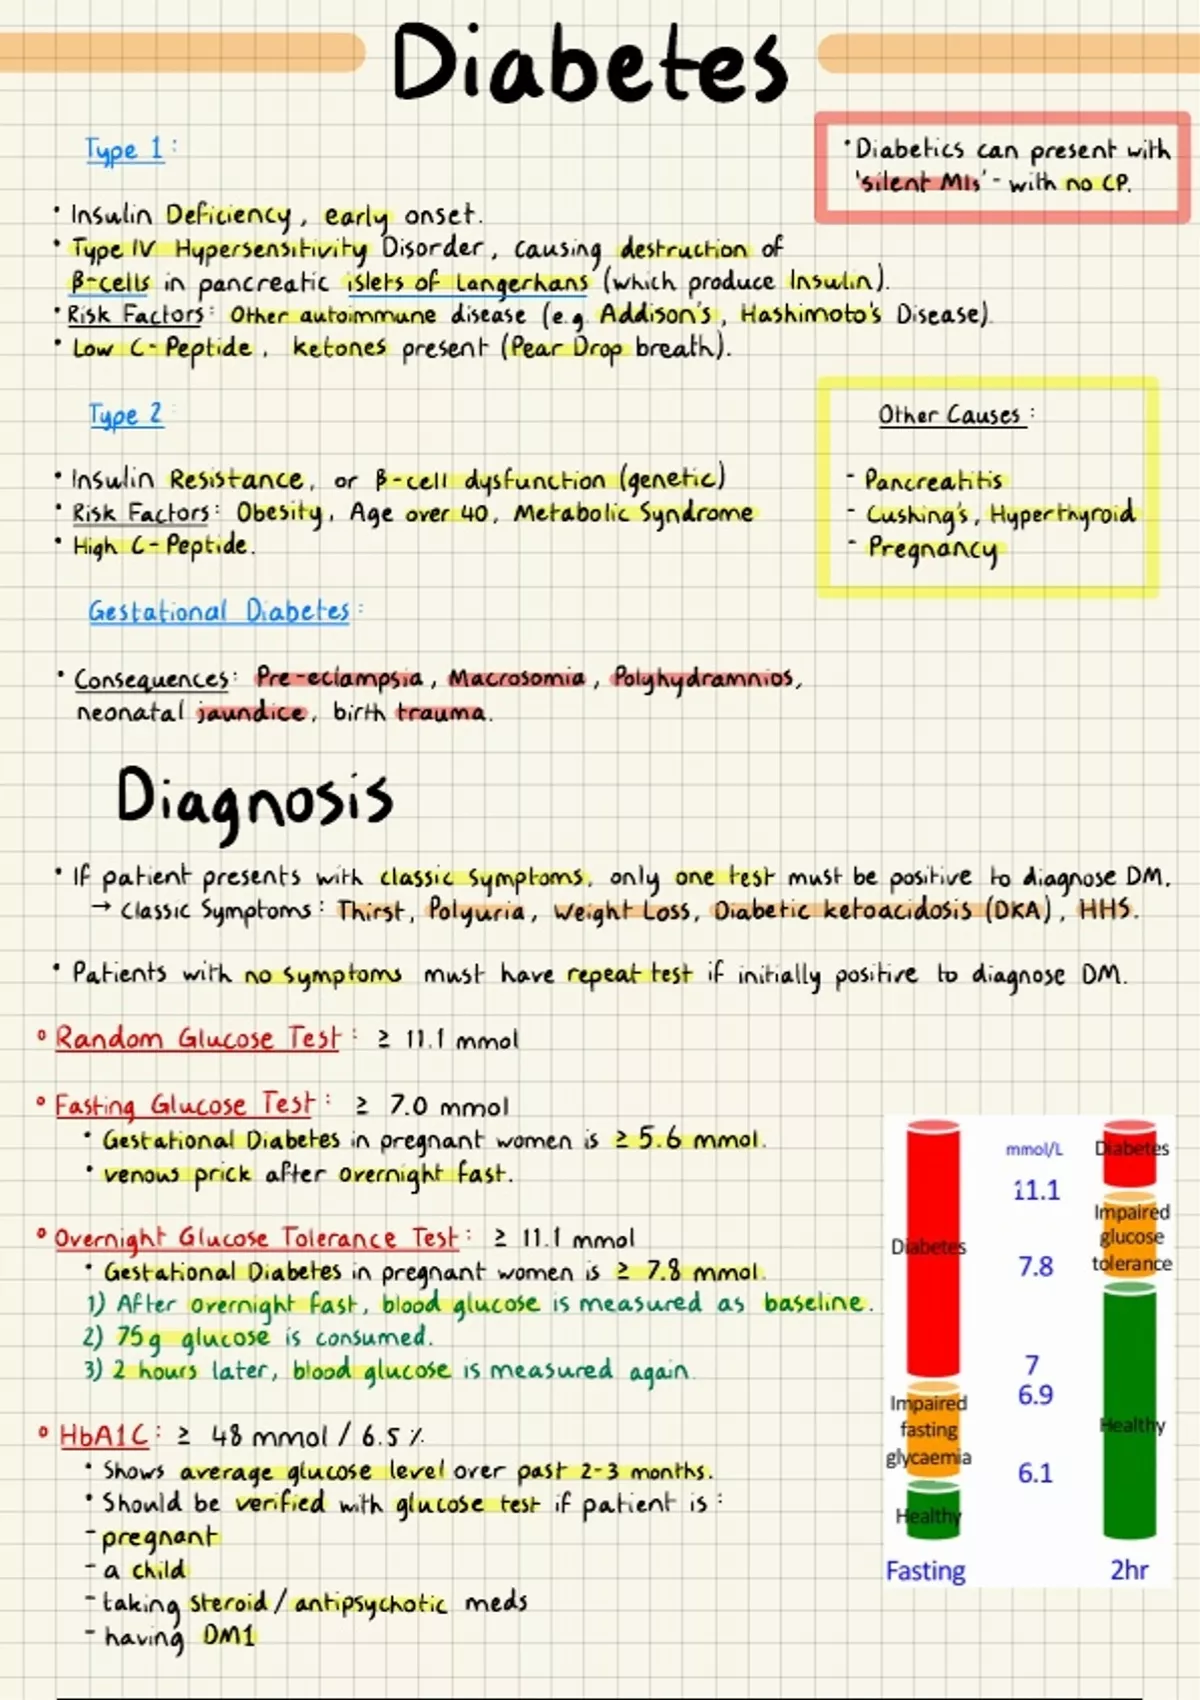 Diabetes
Type 1:
• Diabetics can present with
'silent MIs' - with no CP.
• Insulin Deficiency, early onset.
• Type IV Hypersensitivity Disorder, causing destruction of
β-cells in pancreatic islets of Langerhans (which produce Insulin).
• Risk Factors: Other autoimmune disease (e.g. Addison's, Hashimoto's Disease)
• Low C-Peptide, ketones present (Pear Drop breath).
Type 2:
• Insulin Resistance, or β-cell dysfunction (genetic)
• Risk Factors: Obesity, Age over 40, Metabolic Syndrome
• High C-Peptide.
Other Causes:
- Pancreatitis
- Cushing's, Hyperthyroid
- Pregnancy
Gestational Diabetes:
• Consequences: Pre-eclampsia, Macrosomia, Polyhydramnios,
neonatal jaundice, birth trauma.
Diagnosis
• If patient presents with classic symptoms, only one test must be positive to diagnose DM.
→ Classic Symptoms: Thirst, Polyuria, Weight Loss, Diabetic ketoacidosis (DKA), HHS.
• Patients with no symptoms must have repeat test if initially positive to diagnose DM.
° Random Glucose Test: ≥ 11.1 mmol
° Fasting Glucose Test: ≥ 7.0 mmol
• Gestational Diabetes in pregnant women is ≥ 5.6 mmol.
• venous prick after overnight fast.
° Overnight Glucose Tolerance Test: ≥ 11.1 mmol
• Gestational Diabetes in pregnant women is ≥ 7.8 mmol.
1) After overnight fast, blood glucose is measured as baseline.
2) 75g glucose is consumed.
3) 2 hours later, blood glucose is measured again.
° HbA1C: ≥ 48 mmol / 6.5 %
• Shows average glucose level over past 2-3 months.
• Should be verified with glucose test if patient is:
- pregnant
- a child
- taking steroid / antipsychotic meds
- having DM1
Diabetes
Impaired
fasting
glycaemia
Healthy
Fasting
mmol/L
11.1
7.8
7
6.9
6.1
Diabetes
Impaired
glucose
tolerance
Healthy
2hr